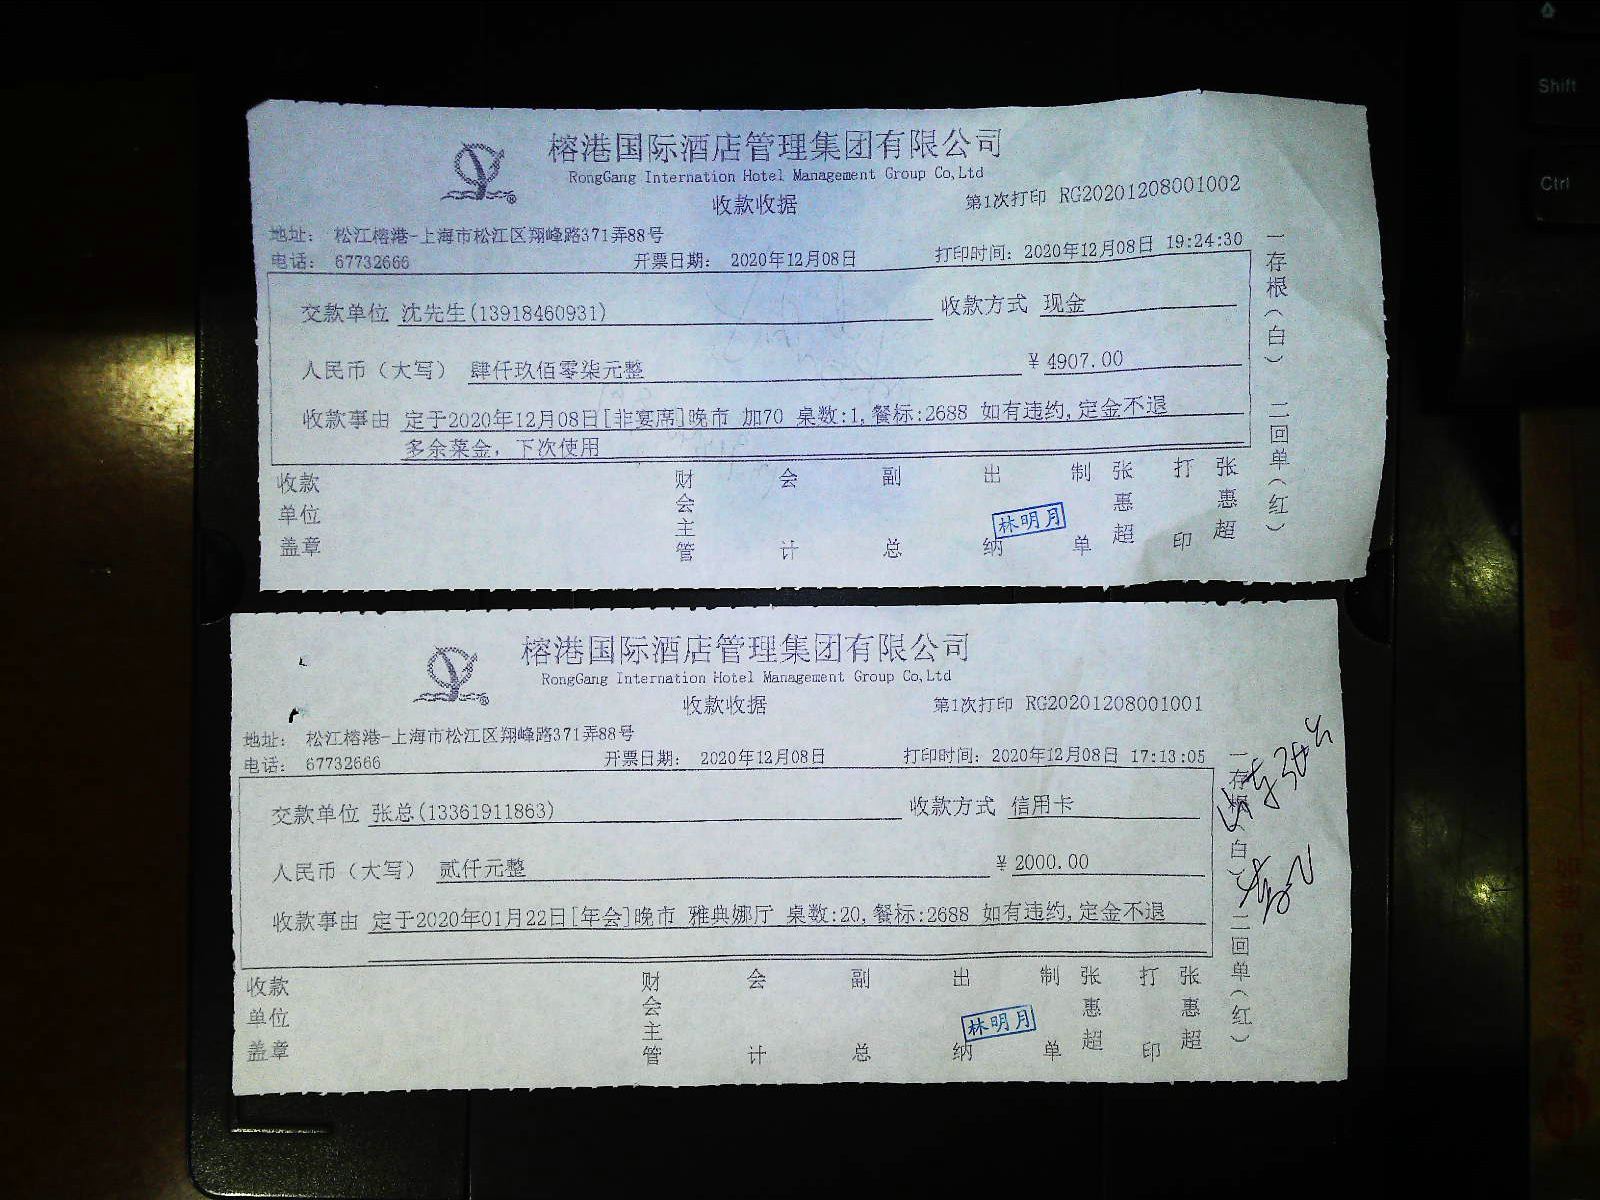 Shift
Ctrl
榕港国际酒店管理集团有限公司
RongGang Internation Hotel Management Group Co,Ltd
收款收据
第1次打印 RG20201208001002
地址： 松江榕港-上海市松江区翔峰路371弄88号
电话： 67732666 开票日期： 2020年12月08日 打印时间：2020年12月08日 19:24:30
交款单位 沈先生(13918460931) 收款方式 现金
人民币（大写） 肆仟玖佰零柒元整 ￥4907.00
收款事由 定于2020年12月08日[非宴席]晚市 加70 桌数:1,餐标:2688 如有违约,定金不退
多余菜金，下次使用
收款单位盖章 财会主管 会计 副总 出纳 林明月 制单 张惠超 打印 张惠超
一存根（白） 二回单（红）
榕港国际酒店管理集团有限公司
RongGang Internation Hotel Management Group Co,Ltd
收款收据
第1次打印 RG20201208001001
地址： 松江榕港-上海市松江区翔峰路371弄88号
电话： 67732666 开票日期： 2020年12月08日 打印时间：2020年12月08日 17:13:05
交款单位 张总(13361911863) 收款方式 信用卡
人民币（大写） 贰仟元整 ￥2000.00
收款事由 定于2020年01月22日[年会]晚市 雅典娜厅 桌数:20,餐标:2688 如有违约,定金不退
收款单位盖章 财会主管 会计 副总 出纳 林明月 制单 张惠超 打印 张惠超
一存根（白） 二回单（红）